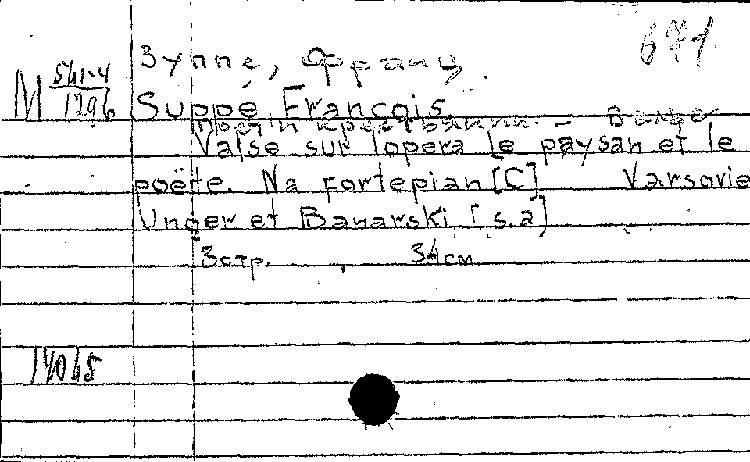 671
Зуппе, Франц.
M 561-4
1296
Suppé, François
Поэт и крестьянин. - Вальс
Valse sur lopera le paysan et le
poëte. Na fortepian [C] Varsovie
Unger et Banarski [s.a]
3стр. , 34см
14065